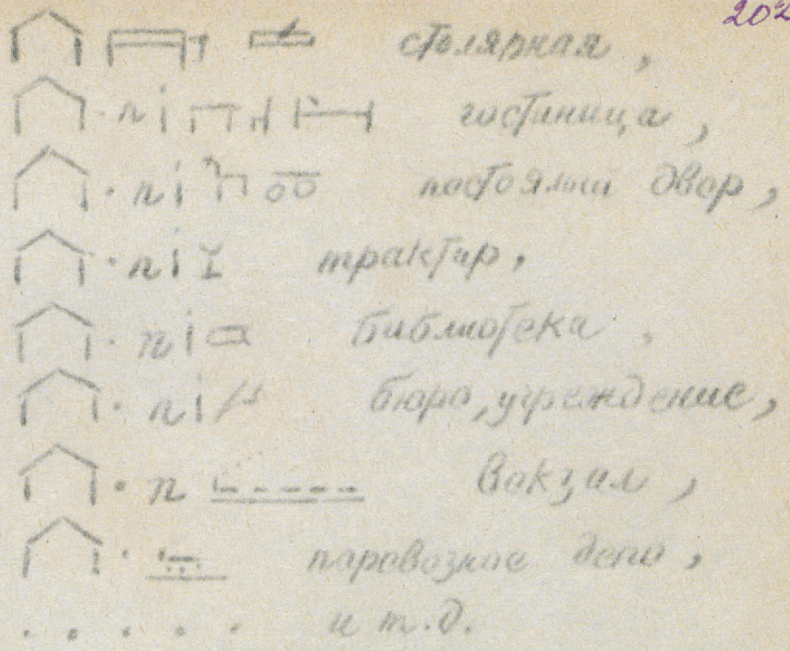 202
столярная,
n i гостиница,
n i постоялый двор,
n i трактир,
n i библиотека,
n i бюро, учреждение,
n вокзал,
паровозное депо,
. . . . . и т.д.